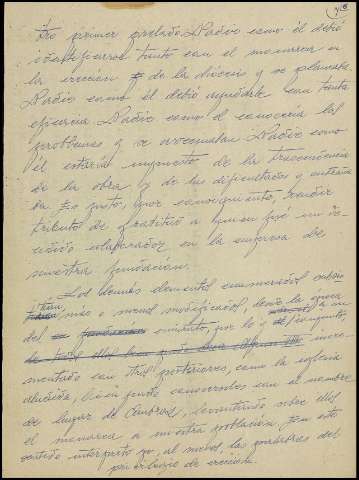 tro primer prelado. Nadie como él debió
identificarse tanto con el monarca en
la erección de la diócesis y se planeada
Nadie como él debió ayudarle con tanta
eficacia. Nadie como él conocería los
problemas y se acumulan. Nadie como
él estaría impuesto de la trascendencia
de la obra y de las dificultades y
Es justo, por consiguiente, rendir
tributo de gratitud a quien fué un de-
cidido colaborador en la empresa de
nuestra fundación.
Los demás elementos enumerados
más o menos modificados, desde la época
del emirato, por lo y
incre-
mentado con otros posteriores, como la iglesia
aludida, bien pronto conocerles con el nombre
de lugar de levantando sobre ellos
el monarca a nuestra población. En este
sentido interpreto yo, al menos, las palabras del
privilegio de erección.